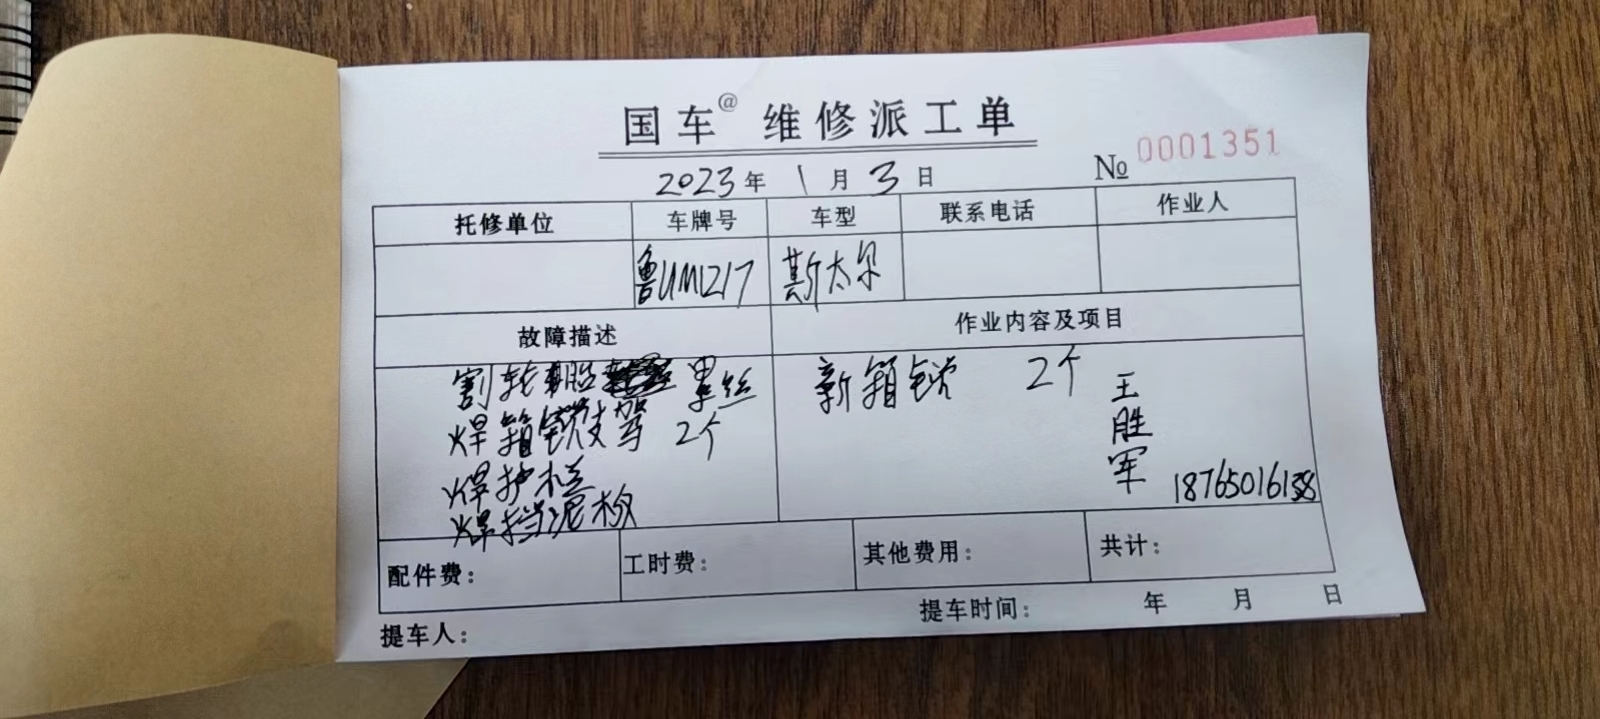 国车@ 维修派工单
2023年 1月 3日 № 0001351
托修单位 车牌号 车型 联系电话 作业人
鲁UM1217 斯太尔
故障描述 作业内容及项目
割轮胎 里丝 新箱锁 2个
焊箱锁支驾 2个
焊护栏
焊挡泥板
王胜军
18765016158
配件费: 工时费: 其他费用: 共计:
提车人: 提车时间: 年 月 日